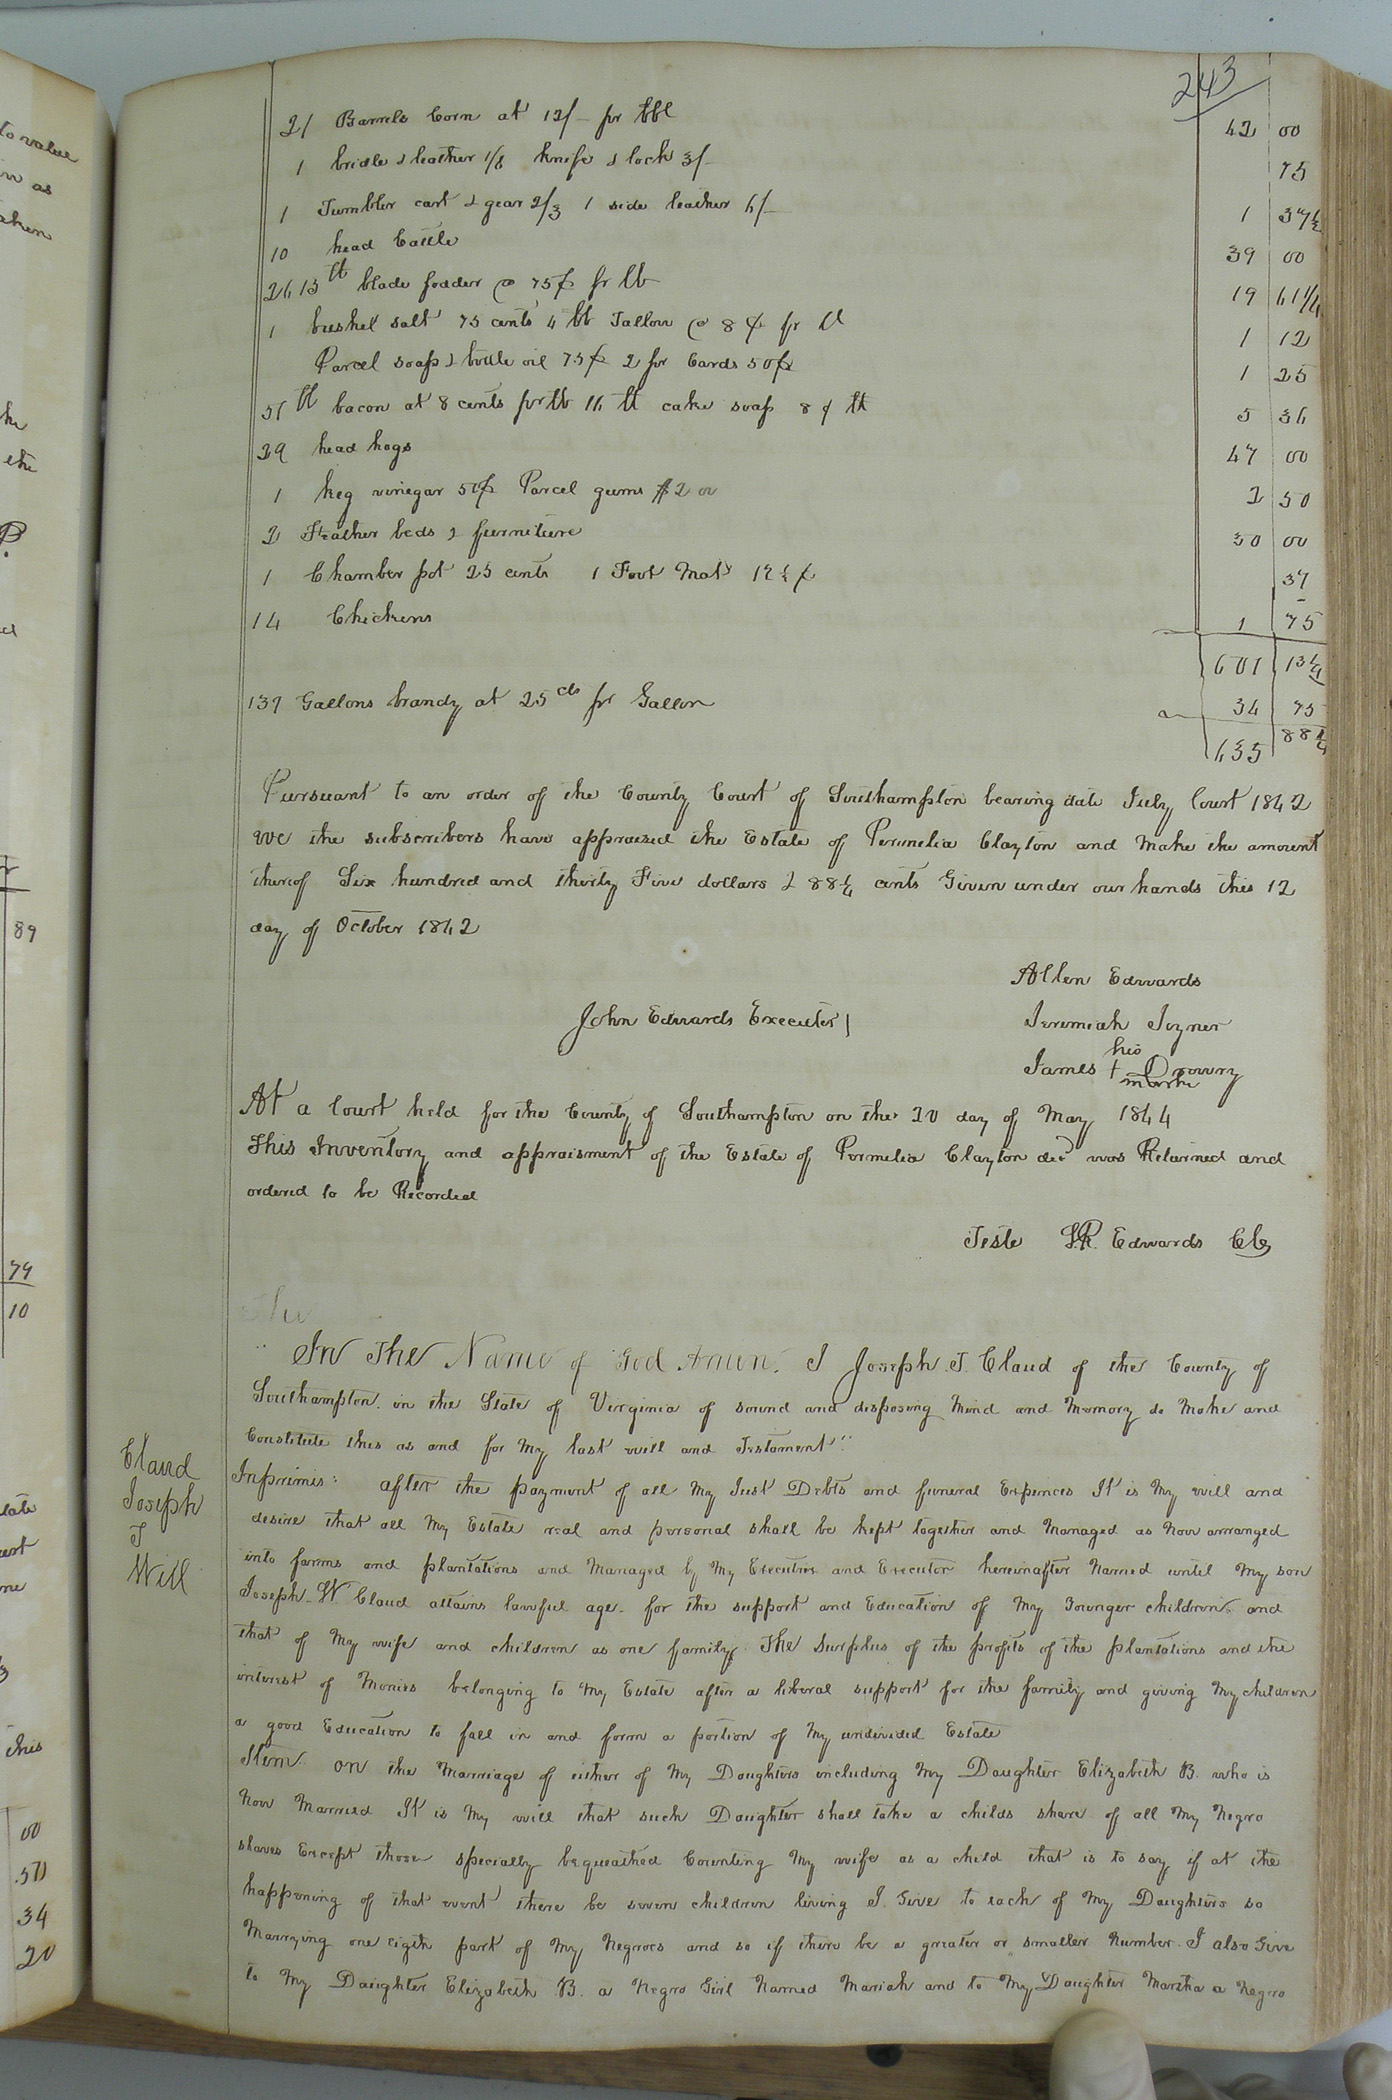 243
21 Barrels Corn at 12/- pr bbl 42 00
1 bridle & leather 1/6 knife & lock 3/- 75
1 Tumbler cart & gear 2/3 1 side leather 6/- 1 37½
10 head Cattle 39 00
2613 lb blade fodder @ 75¢ pr lb 19 61¼
1 bushel salt 75 cents 4 lb Tallow @ 8 ¢ pr lb 1 12
Parcel soap & bottle oil 75¢ 2 pr Cards 50¢ 1 25
51 lb bacon at 8 cents pr lb 16 lb cake soap 8 ¢ lb 5 36
29 head hogs 47 00
1 keg vinegar 50¢ Parcel gums $2 00 2 50
2 Feather beds & furniture 30 00
1 Chamber pot 25 cents 1 Foot Mat 12½ ¢ 37
14 Chickens 1 75
601 13¼
139 Gallons brandy at 25 cts pr Gallon 34 75
635 88¼
Pursuant to an order of the County Court of Southampton bearing date July Court 1842
We the subscribers have appraised the Estate of Permelia Clayton and Make the amount
thereof Six hundred and thirty Five dollars & 88¼ cents Given under our hands this 12
day of October 1842
Allen Edwards
John Edwards Executor Jeremiah Joyner
his
James + Drewry
mark
At a Court held for the County of Southampton on the 20 day of May 1844
This Inventory and appraisment of the Estate of Permelia Clayton decd was Returned and
ordered to be Recorded
Teste L.R. Edwards Clk
The
In The Name of God Amen. I Joseph T. Claud of the County of
Southampton in the State of Virginia of sound and disposing Mind and Memory do Make and
Constitute this as and for My last will and Testament
Claud
Joseph
T
Will
Inprimis: after the payment of all My Just Debts and funeral Expences It is My will and
desire that all My Estate real and personal shall be kept together and Managed as Now arranged
into farms and plantations and Managed by My Executrix and Executor hereinafter Named until My son
Joseph W. Claud attains lawful age. for the support and Education of My Younger children and
that of My wife and children as one family. The Surplus of the profits of the plantations and the
interest of Monies belonging to My Estate after a liberal support for the family and giving My children
a good Education to fall in and form a portion of My undivided Estate
Item on the Marriage of either of My Daughters including My Daughter Elizabeth B. who is
Now Married It is My will that such Daughter shall take a childs share of all My Negro
slaves Except those specially bequeathed Counting My wife as a child that is to say if at the
happening of that event there be seven children living I Give to each of My Daughters so
Marrying one eigth part of My Negroes and so if there be a greater or smaller Number. I also Give
to My Daughter Elizabeth B. a Negro Girl Named Mariah and to My Daughter Martha a Negro